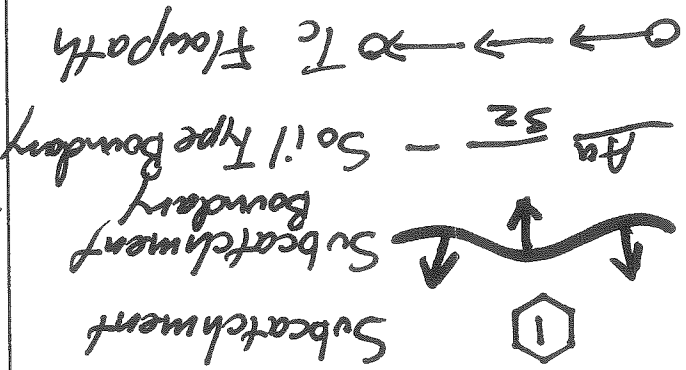 1 Subcatchment
Subcatchment
Boundary
Aa
SZ Soil Type Boundary
Tc Flowpath